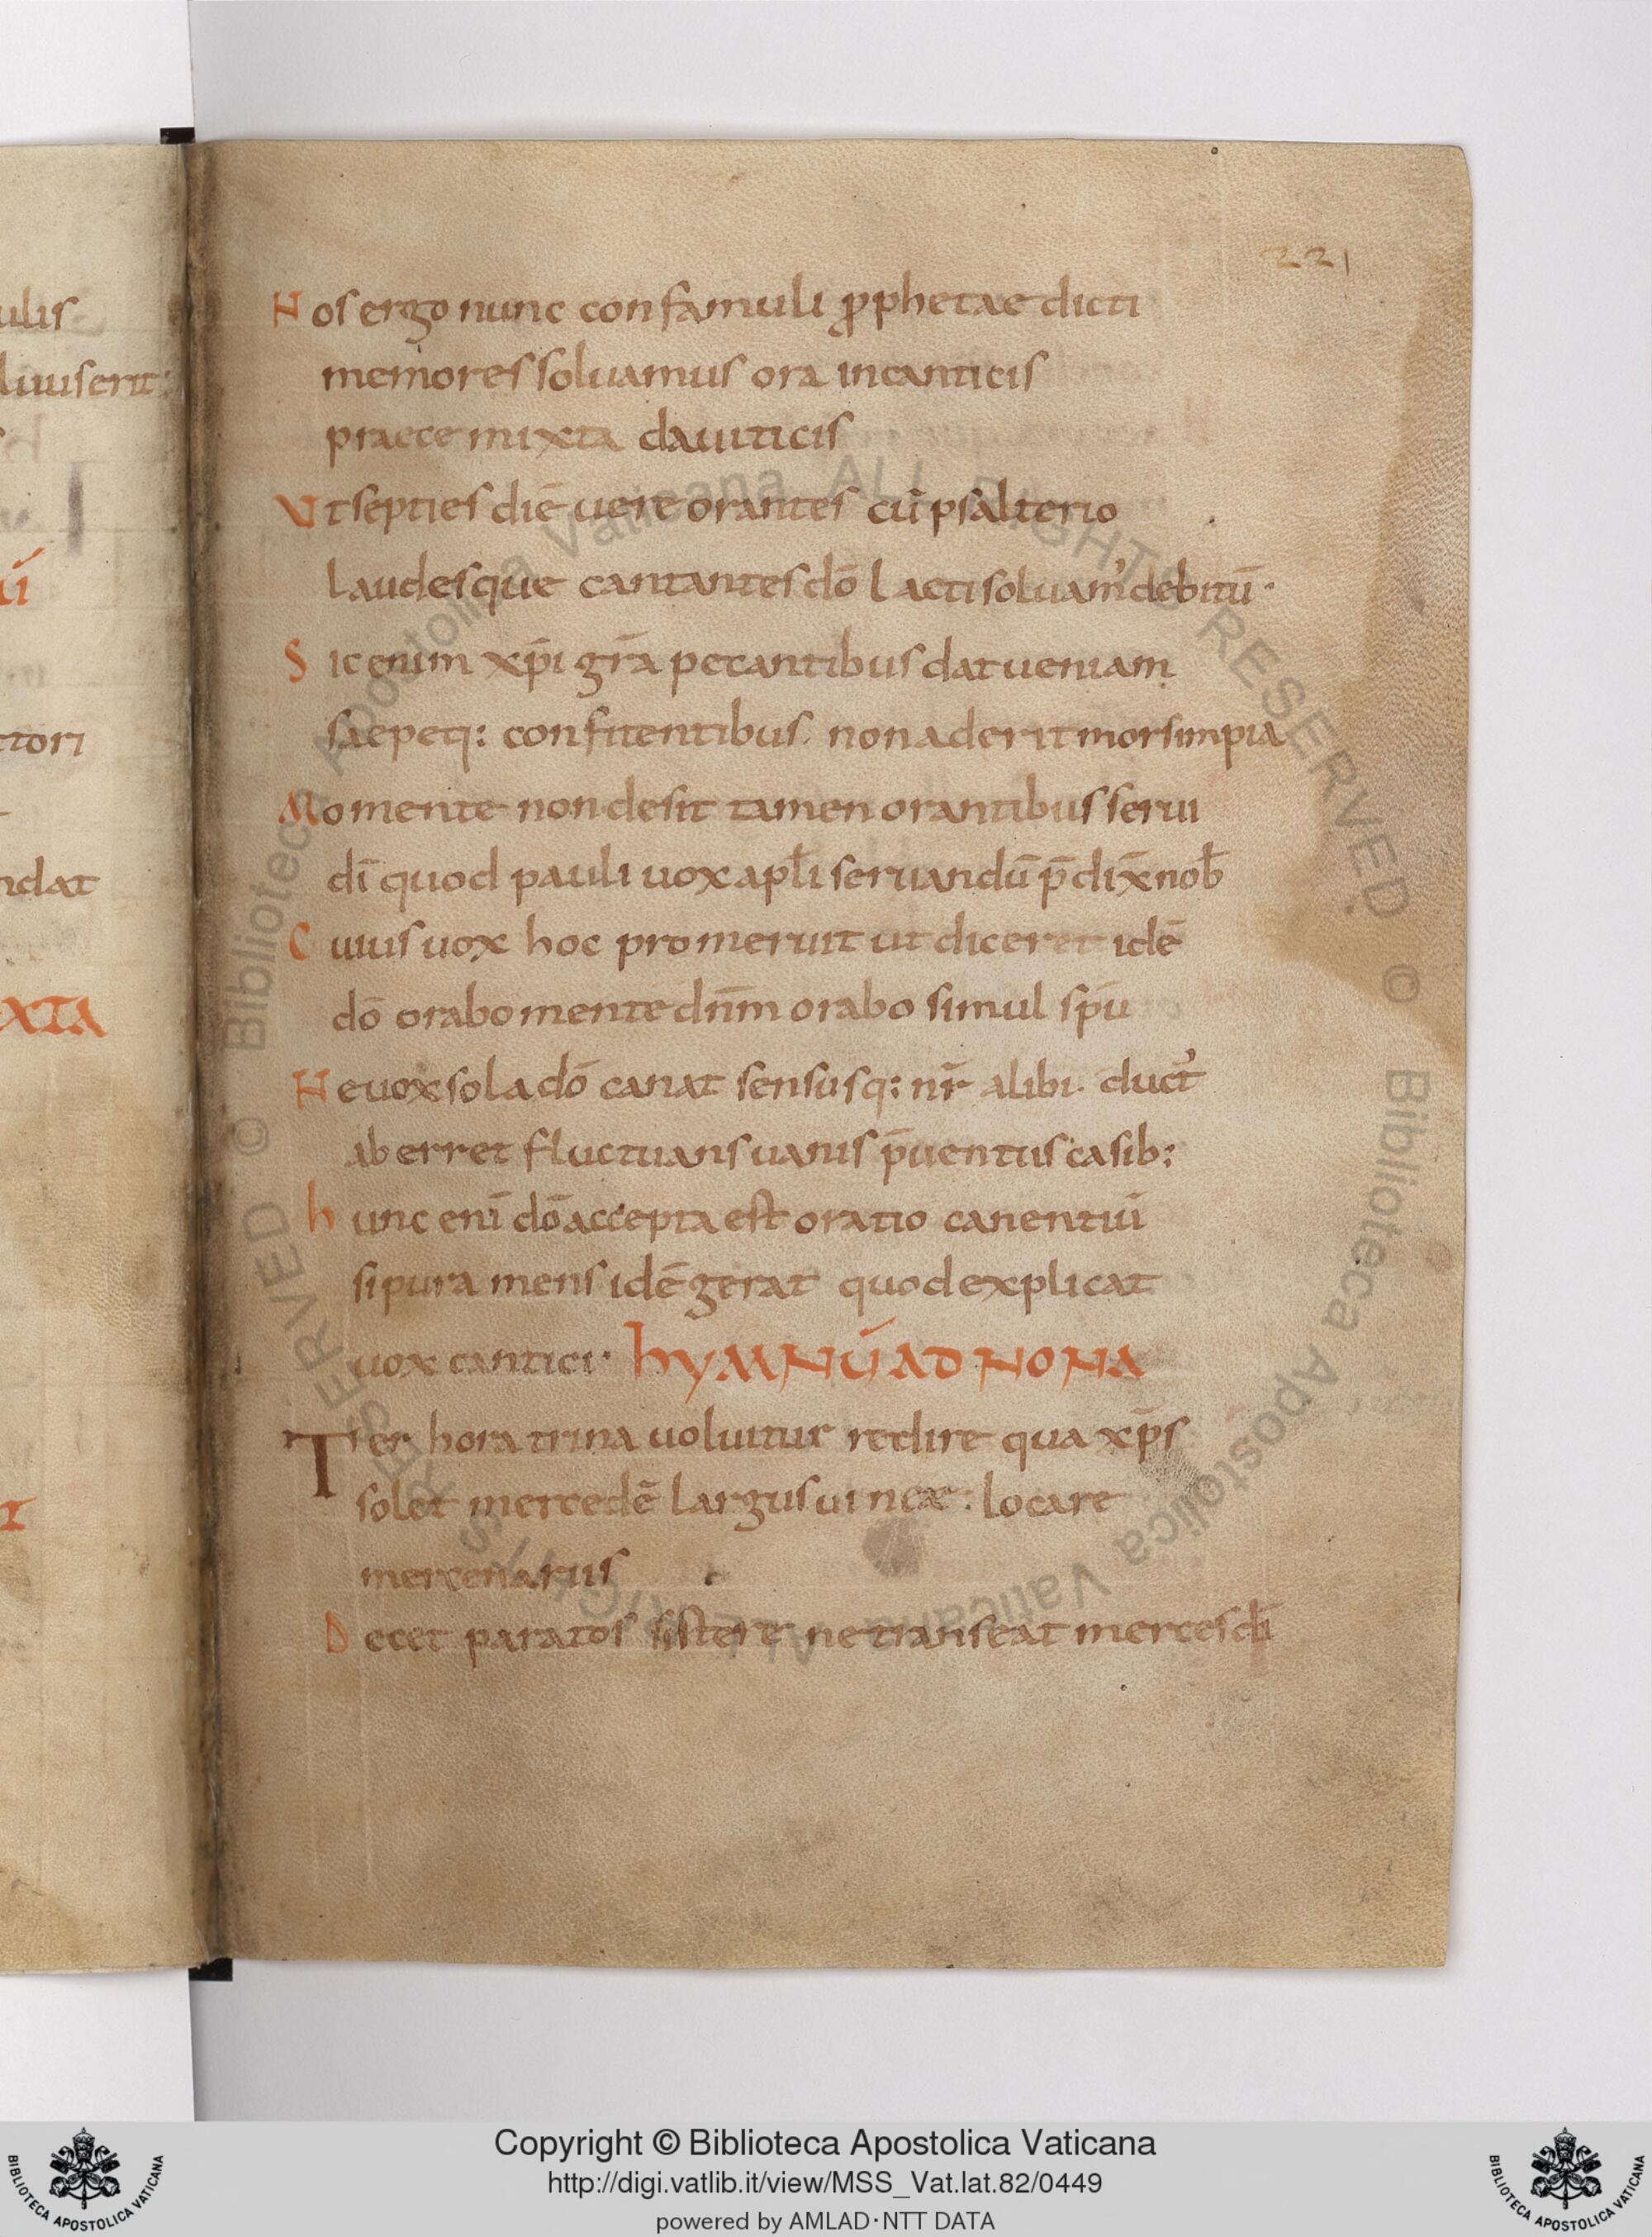 ulis
luuserit
ctori
ndat
XTA
221
Nos ergo nunc confamuli ꝓphetae dicti
memores soluamus ora incanticis
praece mixta dauiticis
Ut septies diē uere orantes cū psalterio
laudesque cantantes dō lacti soluam' debitū·
Sic enim xp̄i gr̄a peccantibus dat ueniam
saepeq: confitentibus. non aderit mors impia
Momente non desit tamen orantibus serui
dī quod pauli uox apłi seruandū p̄dix̄ nob̄
Cuius uox hoc promeruit ut diceret idē
dō orabo mente dn̄m orabo simul sp̄u
Ne uox sola dō canat sensusq: nr̄ alibi. duct'
aberret fluctuans uanis p̄uentus casib:
hunc enī dō accepta est oratio canentiū
si pura mens idē gerat quod explicat
uox cantici· hYMNŪ AD NONA
Ter hora trina uoluitur redire qua xp̄s
solet mercedē largus uineae: locare
mercenarius
Decet paratos sistere ne transeat merces db̄
Copyright © Biblioteca Apostolica Vaticana
http://digi.vatlib.it/view/MSS_Vat.lat.82/0449
powered by AMLAD·NTT DATA
BIBLIOTECA APOSTOLICA VATICANA
BIBLIOTECA APOSTOLICA VATICANA
© Biblioteca Apostolica Vaticana ALL RIGHTS RESERVED © Biblioteca Apostolica Vaticana ALL RIGHTS RESERVED